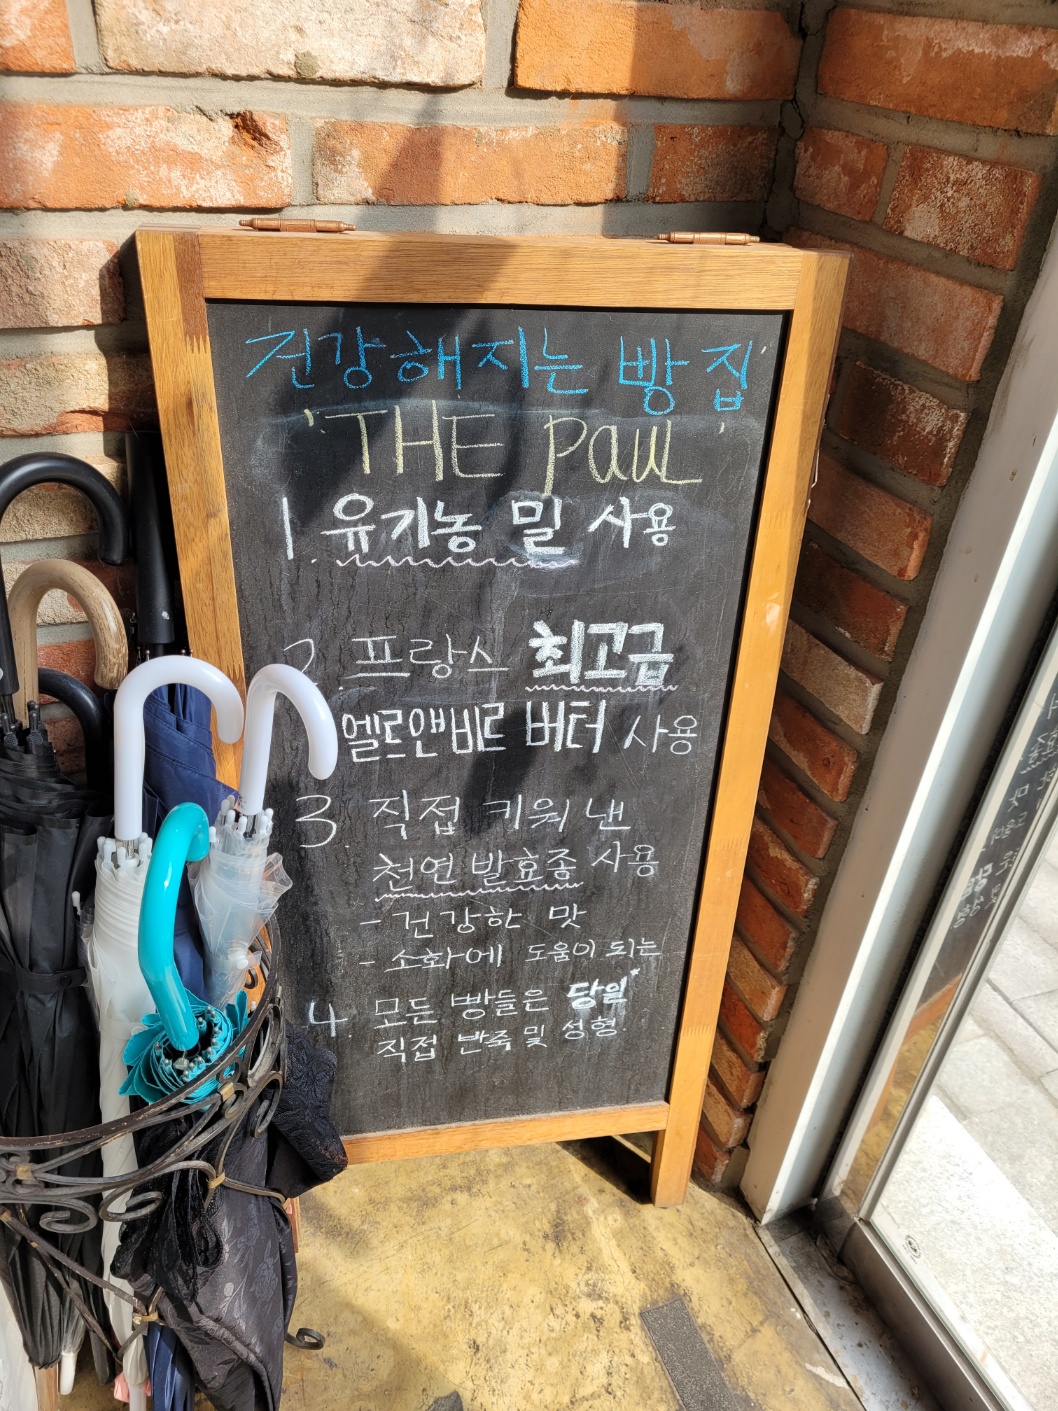 건강해지는 빵집
'THE PauL'
1. 유기농 밀 사용
2. 프랑스 최고급
엘르앤비르 버터 사용
3. 직접 키워 낸
천연 발효종 사용
- 건강한 맛
- 소화에 도움이 되는
4. 모든 빵들은 당일
직접 반죽 및 성형.